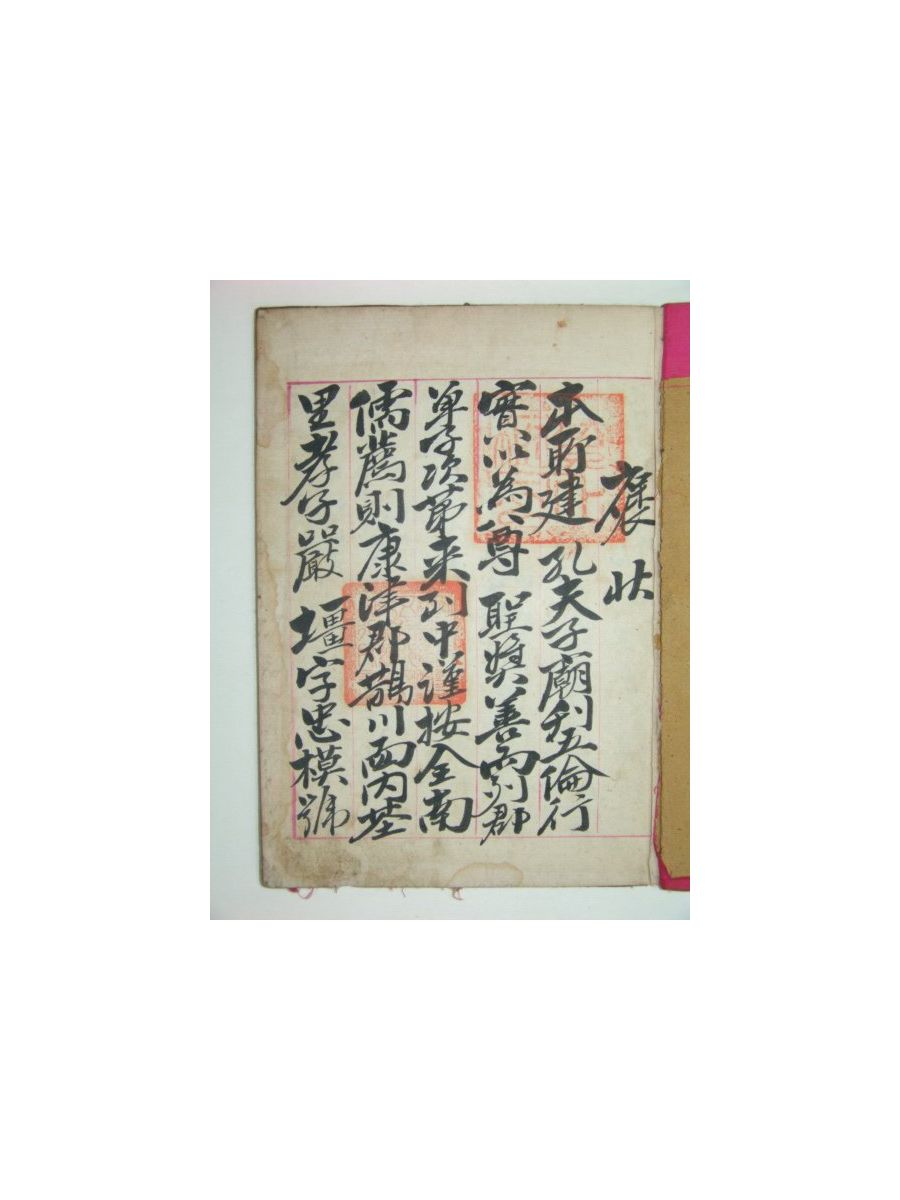 褒狀
本所建 孔夫子廟刊五倫行
實以為尊 聖奬善而列郡
單子次第来到中謹按全南
儒薦則康津郡鵲川面內基
里孝子嚴 壃字忠模號